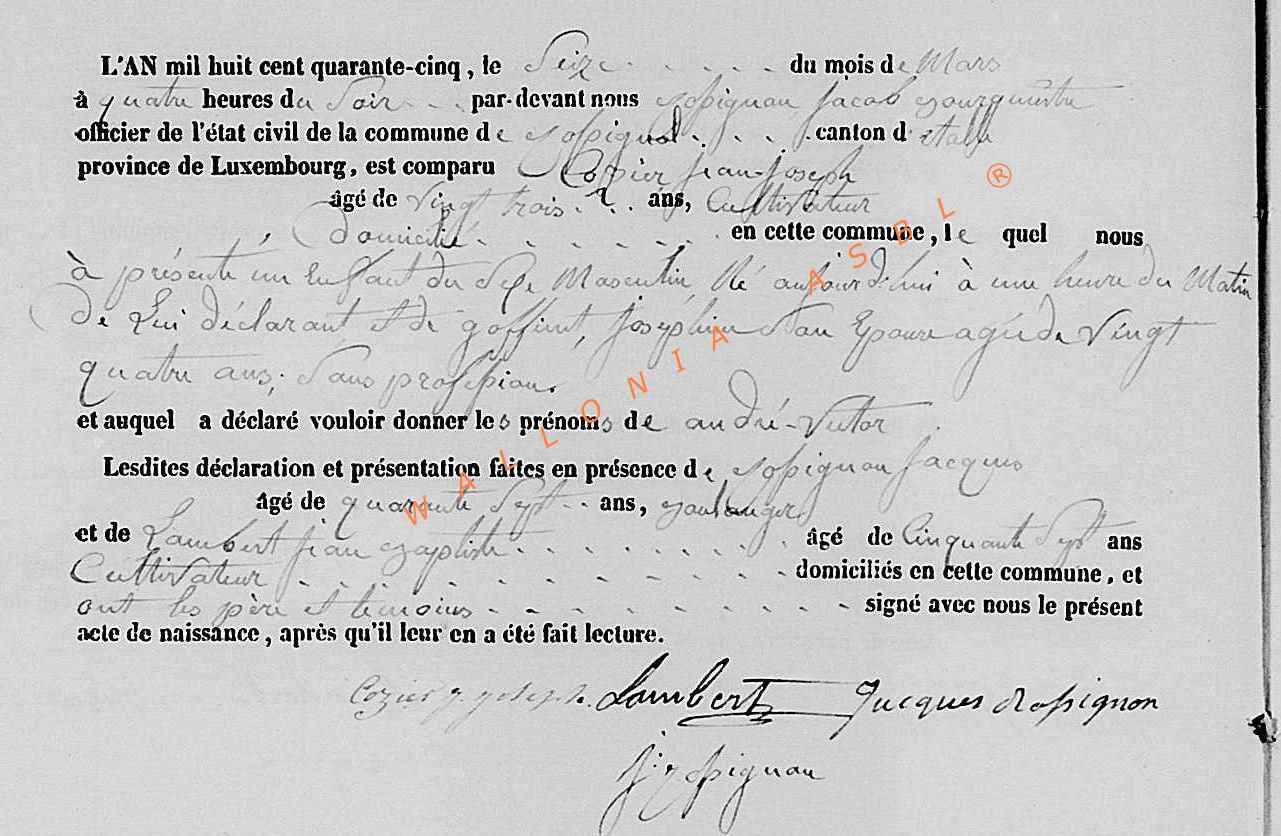 L'AN mil huit cent quarante-cinq, le Seize . . . . . du mois de Mars
à quatre heures du Soir . . . par-devant nous Rossignon Jacob Bourgmestre
officier de l'état civil de la commune de Rossignol . . . canton d'étalle
province de Luxembourg, est comparu Cozier jean-joseph
âgé de vingt trois . . . ans, Cultivateur
domicilié . . . . . . . en cette commune, le quel nous
à présenté un Enfant du Sexe Masculin, Né aujourd'hui à une heure du Matin
De Lui déclarant et de goffinet, josephine Son Epouse agée de Vingt
quatre ans, Sans profession.
et auquel a déclaré vouloir donner les prénoms de andré-Victor
Lesdites déclaration et présentation faites en présence de Rossignon Jacques
âgé de quarante Sept . . ans, Boulanger
et de Lambert jean Baptiste . . . . . . . . âgé de Cinquante Sept ans
Cultivateur . . . . . . . . . . domiciliés en cette commune, et
ont les père et témoins . . . . . . . . . . signé avec nous le présent
acte de naissance, après qu'il leur en a été fait lecture.
Cozier j. joseph. Lambert Jacques Rossignon
J. Rossignon
WALLONIA ASBL ®